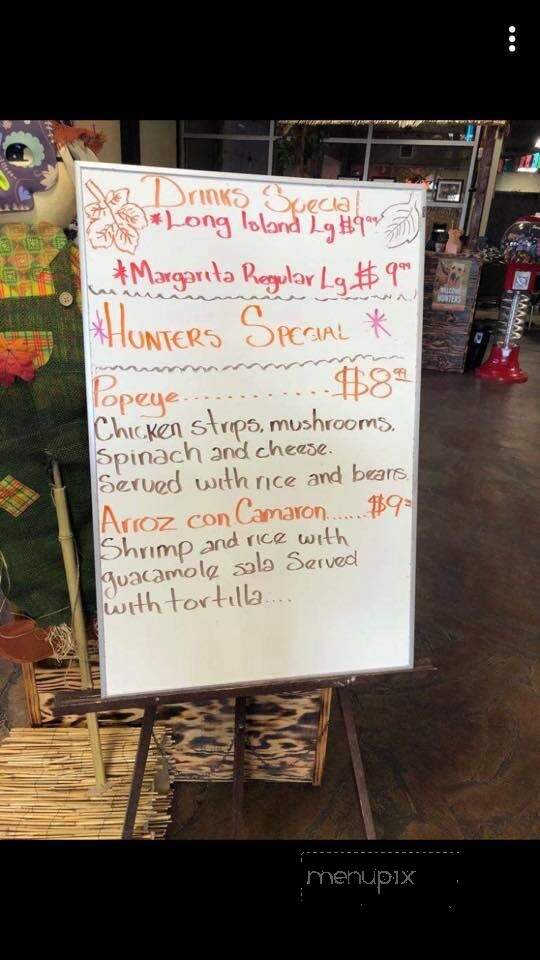 Drinks Special
*Long Island Lg $9.99
*Margarita Regular Lg $9.99
*Hunters Special *
Popeye............$8.99
Chicken strips, mushrooms,
spinach and cheese.
Served with rice and beans.
Arroz con Camaron.......$9
Shrimp and rice with
guacamole sala Served
with tortilla....
WELCOME
HUNTERS
menupix